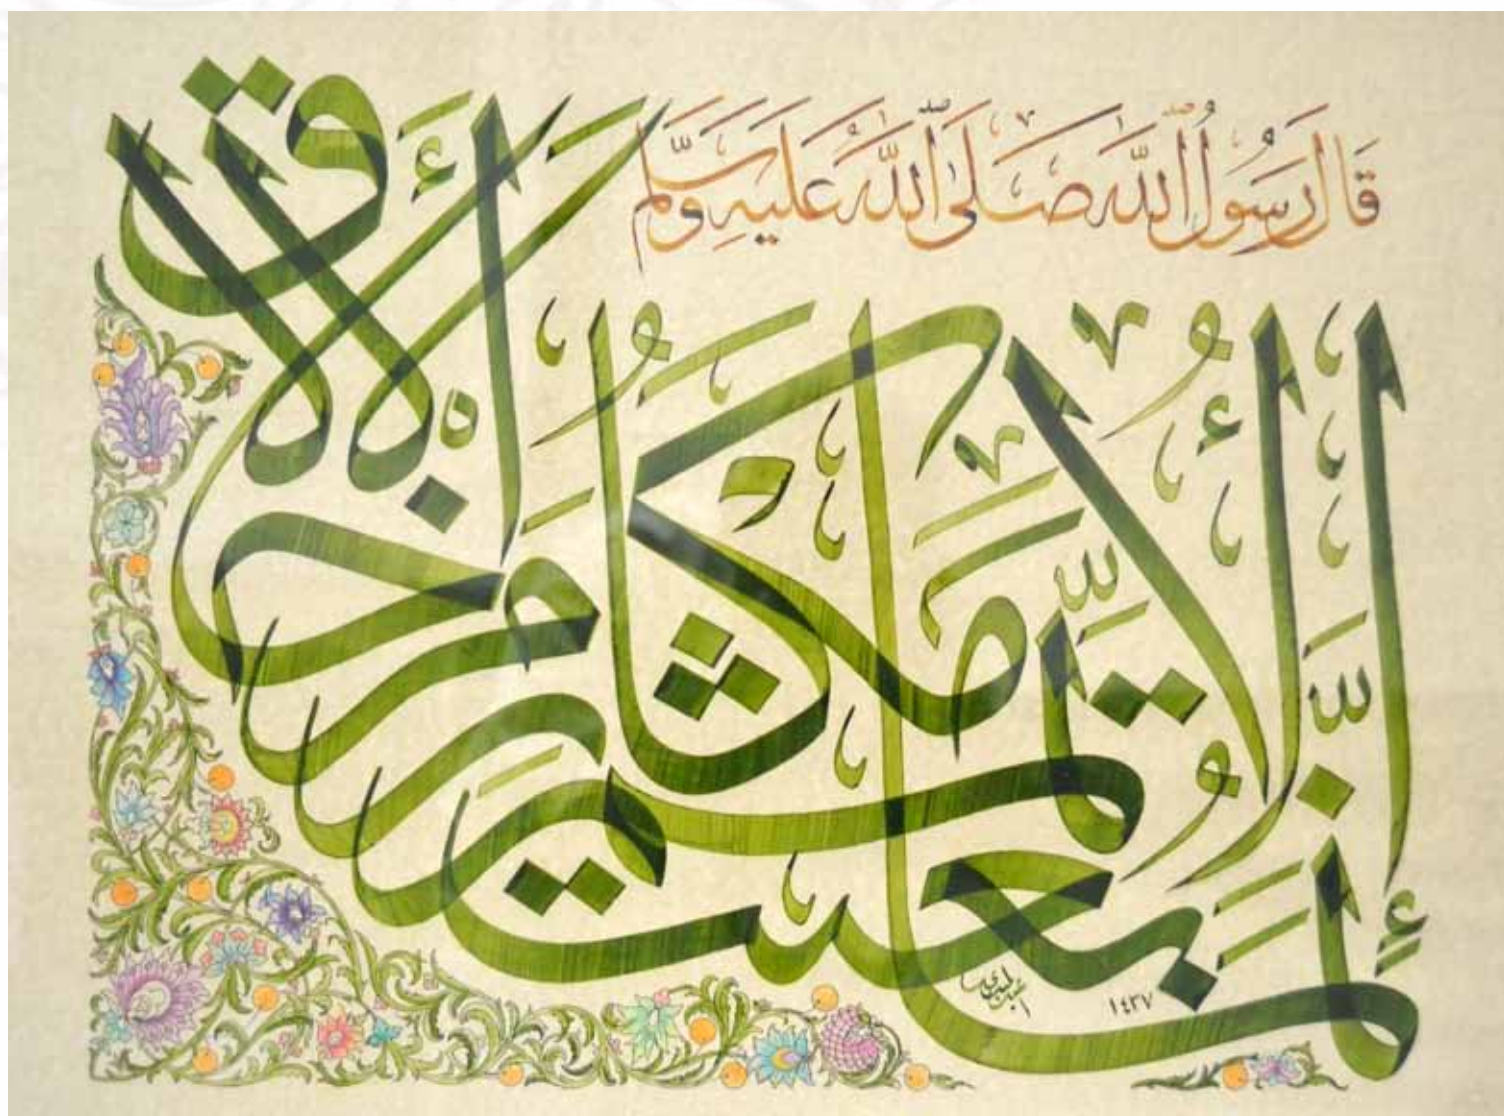 قَالَ رَسُولُ اللَّه صَلَّى اللَّهُ عَلَيهِ وَسَلَّم
إِنَّمَا بُعِثْتُ لِأُتَمِّمَ مَكَارِمَ الأَخْلَاق
١٤٣٧